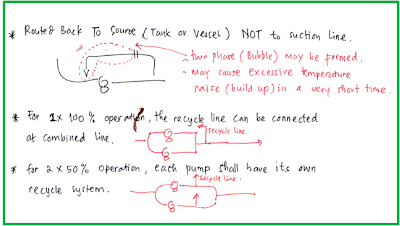 * Route Back To Source (Tank or Vessel) NOT to suction line.
- two phase (Bubble) may be formed.
- May cause excessive temperature
raise (build up) in a very short time.
* For 1x100% operation, the recycle line can be connected
at combined line.
recycle line
* for 2x50% operation, each pump shall have its own
recycle system.
recycle line.